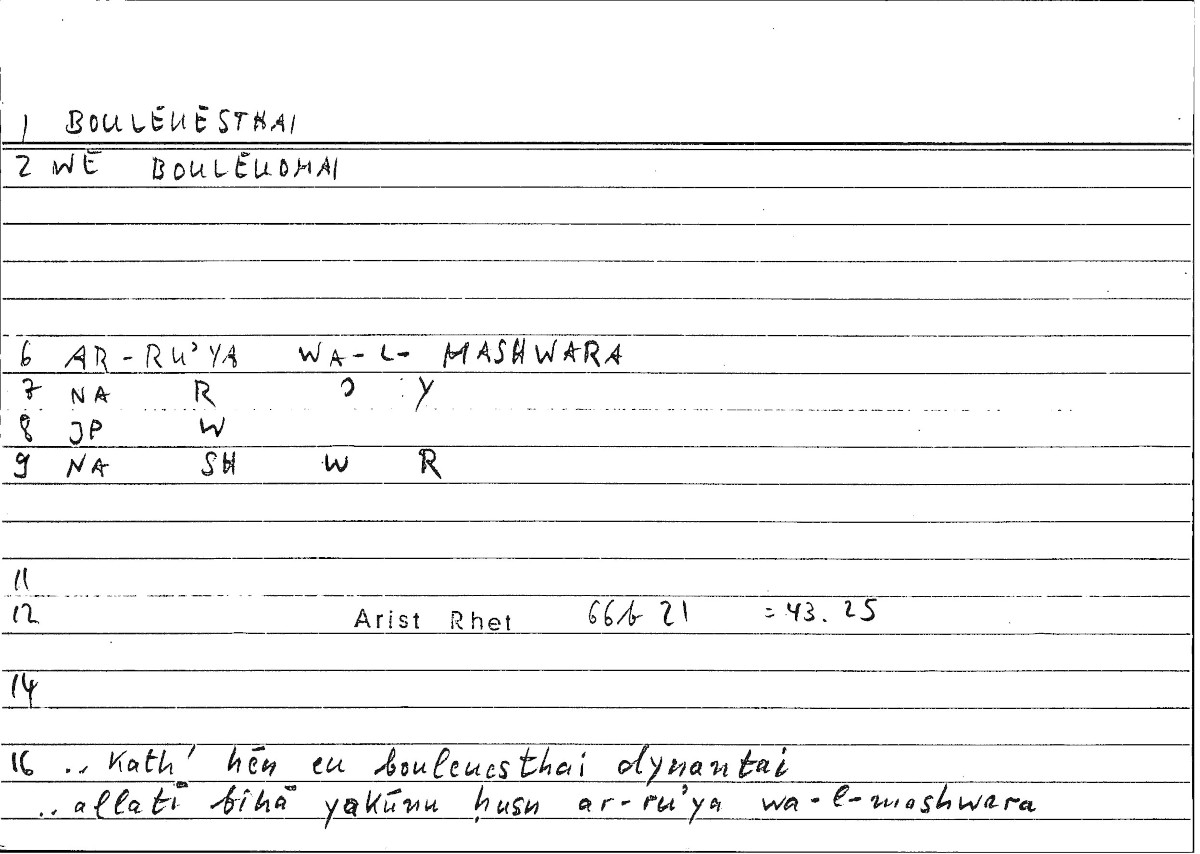 1 BOULĒUĒSTHAI
2 WĒ BOULĒUOMAI
6 AR-RU'YA WA-L- MASHWARA
7 NA R ' Y
8 JP W
9 NA SH W R
11
12 Arist Rhet 66b 21 = 43.25
14
16 .. kath' hēn eu bouleuesthai dynantai
.. allatī bihā yakūnu ḥusn ar-ru'ya wa-l-mashwara